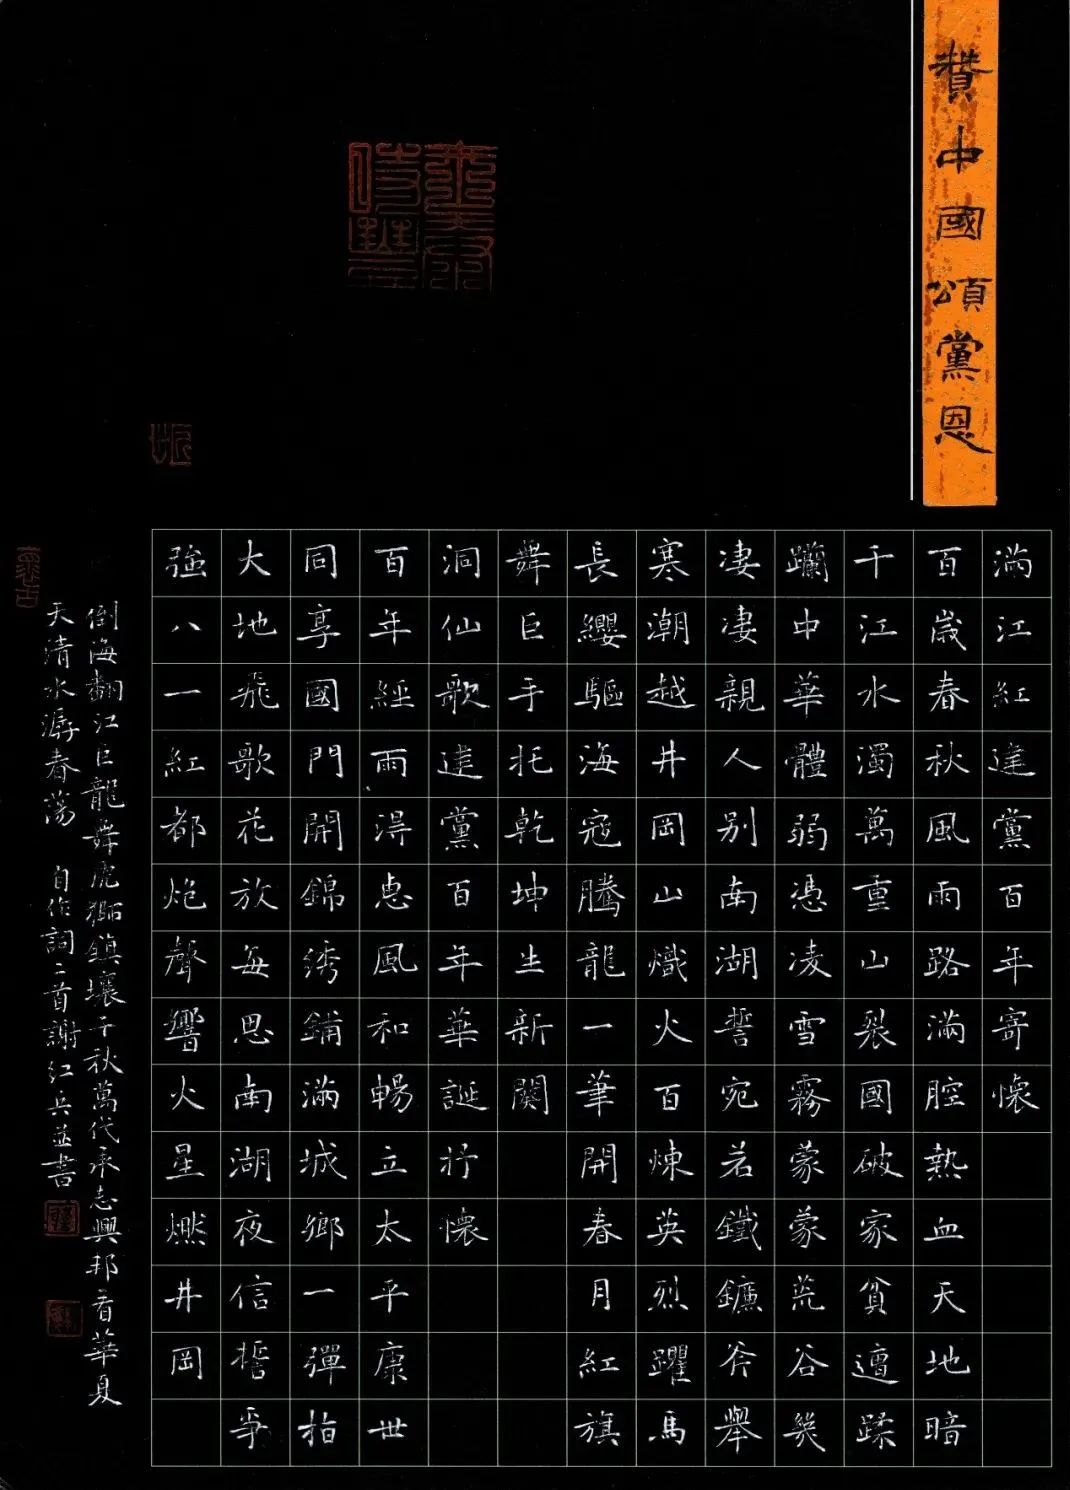 贊中國頌黨恩
滿江紅建黨百年寄懷
百歲春秋風雨路滿腔熱血天地暗
千江水濁萬重山裂國破家貧遭蹂
躪中華體弱憑凌雪霧蒙蒙荒谷幾
凄凄親人別南湖誓宛若鐵鑣斧舉
寒潮越井岡山熾火百煉英烈躍馬
長纓驅海寇騰龍一筆開春月紅旗
舞巨手托乾坤生新闋
洞仙歌建黨百年華誕抒懷
百年經雨得惠風和暢立太平康世
同享國門開錦绣鋪滿城鄉一彈指
大地飛歌花放每思南湖夜信誓爭
強八一紅都炮聲響火星燃井岡
倒海翻江巨龍舞虎獅鎮壤千秋萬代承志興邦看華夏
天清水潺春蕩 自作詞二首謝紅兵並書